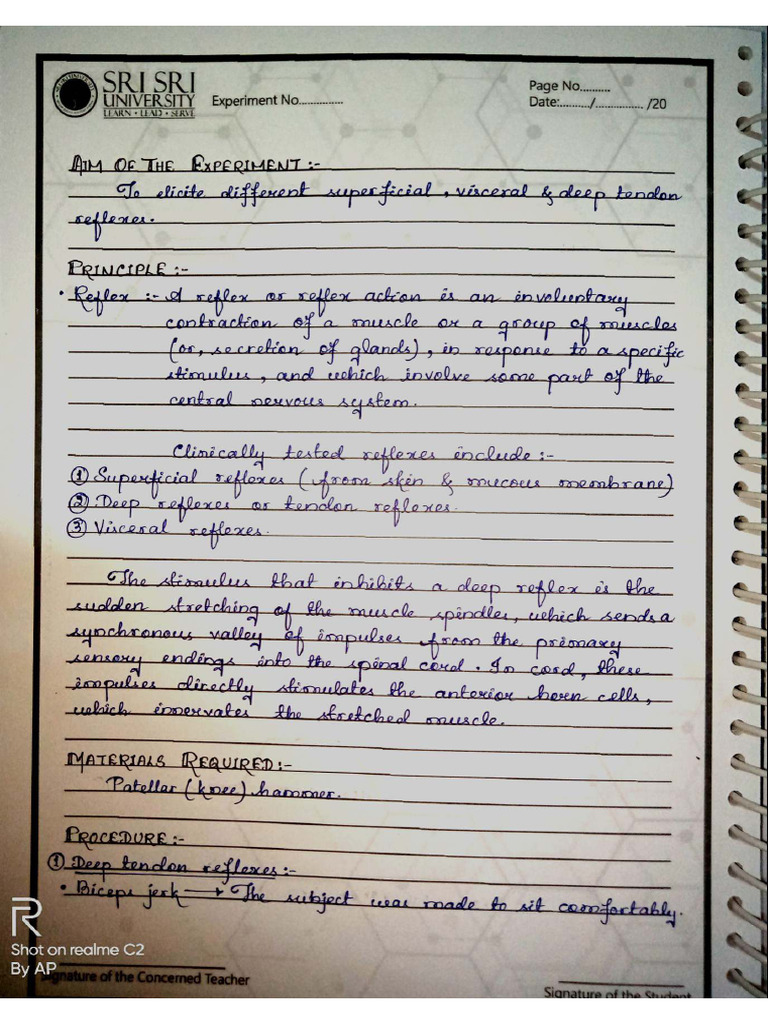 SRI SRI
UNIVERSITY
LEARN • LEAD • SERVE
Experiment No..............
Page No..........
Date:........../................ /20
AIM OF THE EXPERIMENT :-
To elicite different superficial, visceral & deep tendon
reflexes.
PRINCIPLE :-
• Reflex :- A reflex or reflex action is an involuntary
contraction of a muscle or a group of muscles
(or, secretion of glands), in response to a specific
stimulus, and which involve some part of the
central nervous system.
Clinically tested reflexes include :-
① Superficial reflexes (from skin & mucous membrane)
② Deep reflexes or tendon reflexes.
③ Visceral reflexes.
The stimulus that inhibits a deep reflex is the
sudden stretching of the muscle spindles, which sends a
synchronous valley of impulses from the primary
sensory endings into the spinal cord. In cord, these
impulses directly stimulates the anterior horn cells,
which innervates the stretched muscle.
MATERIALS REQUIRED :-
Patellar (knee) hammer.
PROCEDURE :-
① Deep tendon reflexes :-
• Biceps jerk → The subject was made to sit comfortably.
R
Shot on realme C2
By AP
Signature of the Concerned Teacher
Signature of the Student